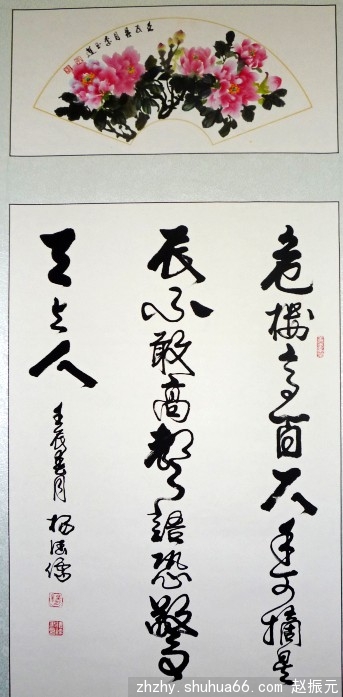 危樓高百尺手可摘星
辰不敢高聲語恐驚
天上人
壬辰春月
zhzhy.shuhua66.com 赵振元